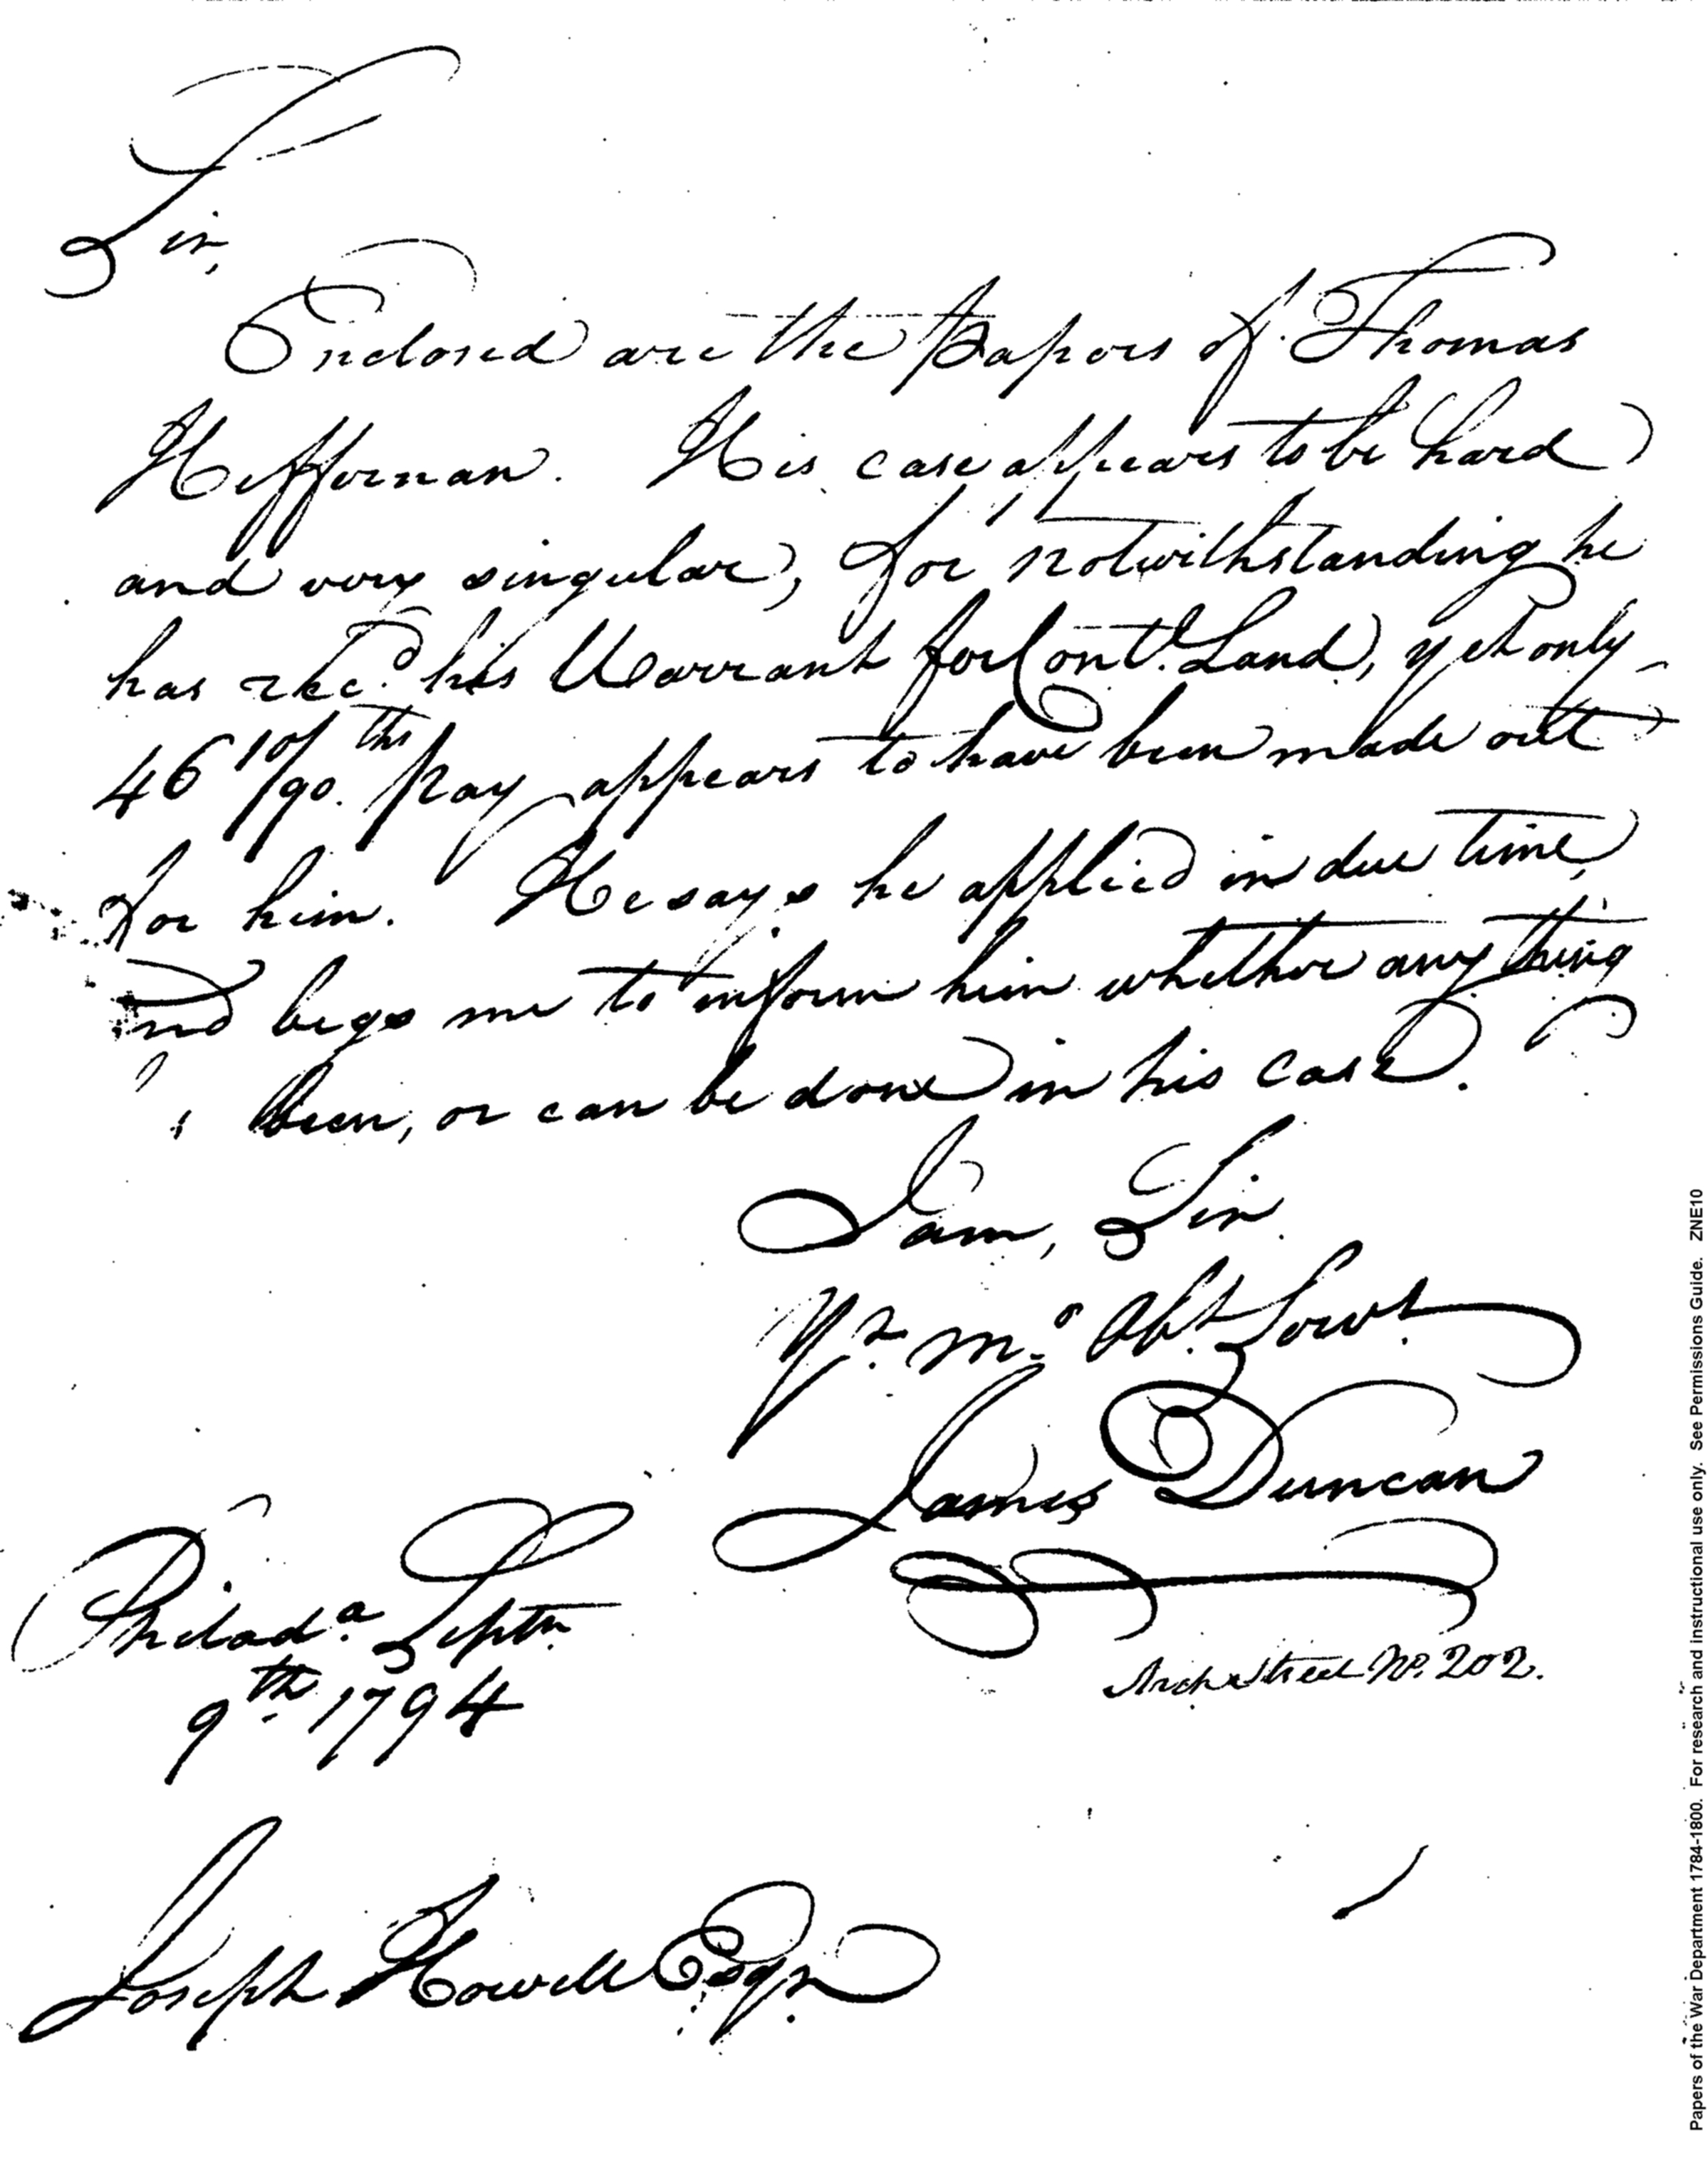 Sir,
Enclosed are the Papers of Thomas
Heffernan. His case appears to be hard
and very singular, for notwithstanding he
has rec.d his Warrant for Cont.l Land, yet only
46 10/90.ths pay appears to have been made out
for him. He says he applied in due time,
and begs me to inform him whether any thing
been, or can be done in his case.
I am, Sir.
Yr. mo. Obt. Servt.
James Duncan
Arch Street No. 202.
Philad.a Septr.
9th. 1794
Joseph Howell Esqr.
Papers of the War Department 1784-1800. For research and instructional use only. See Permissions Guide. ZNE10